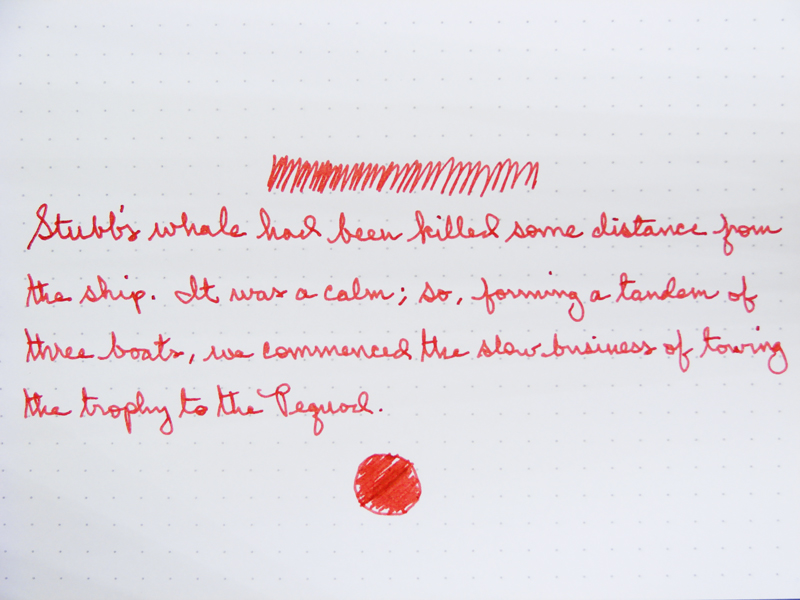 Stubb's whale had been killed some distance from
the ship. It was a calm; so, forming a tandem of
three boats, we commenced the slow business of towing
the trophy to the Pequod.